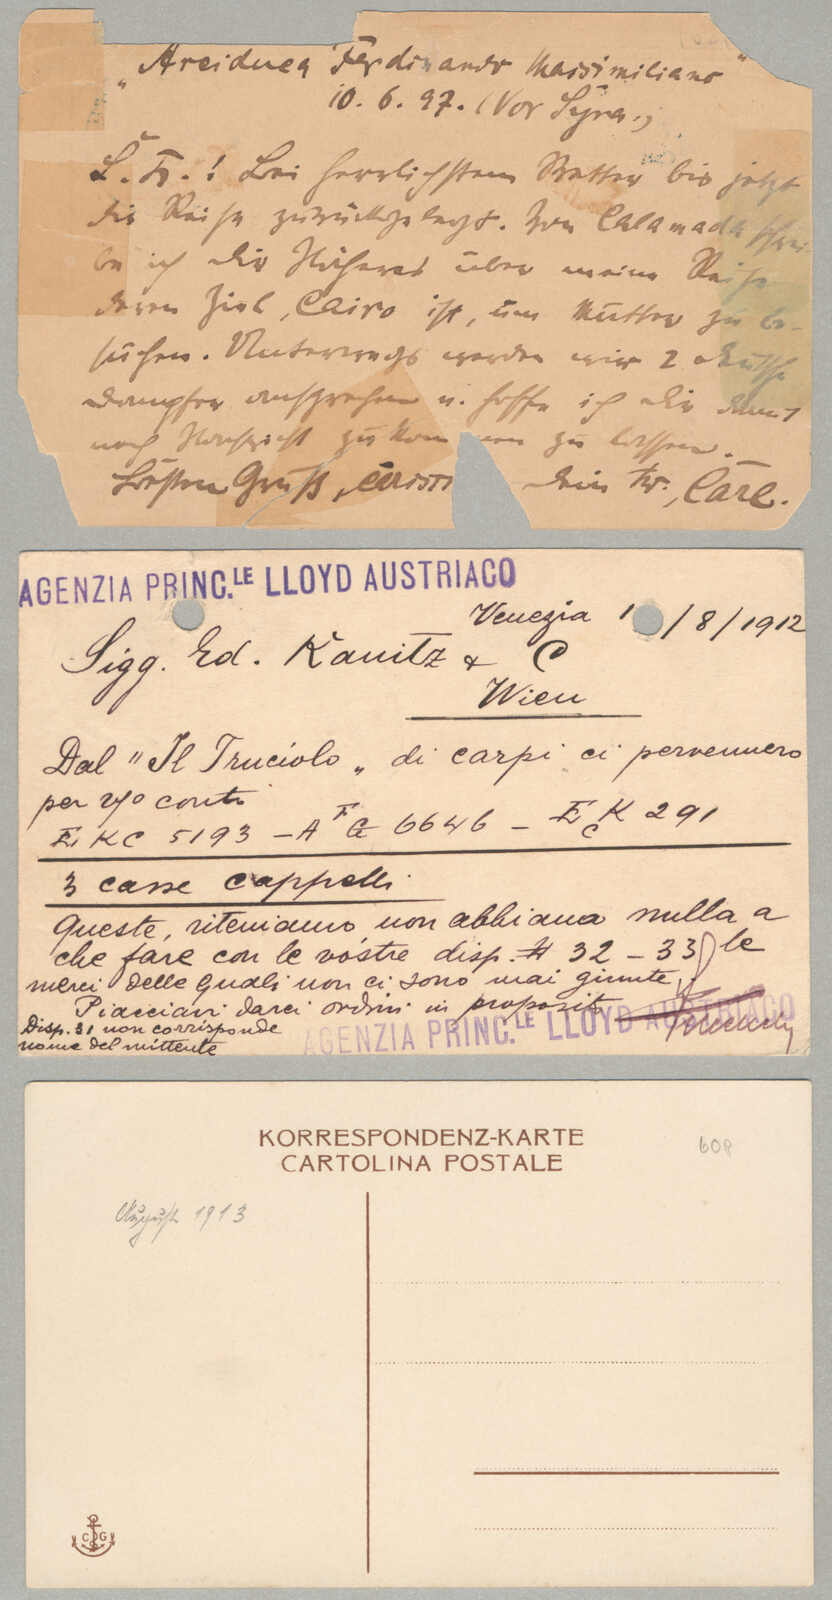 „Arciduca Ferdinando Massimiliano"
10. 6. 97. (Vor Syra.)
L. Fr.! Bei herrlichstem Wetter bis jetzt
die Reise zurückgelegt. Von Calamada schrei-
be ich dir Näheres über meine Reise
deren Ziel, Cairo ist, um Mutter zu be-
suchen. Unterwegs werden wir 2 deutsche
Dampfer ansprechen u. hoffe ich dir damit
noch Nachricht zukommen zu lassen.
Besten Gruss, dein Fr., Carl.
AGENZIA PRINC.LE LLOYD AUSTRIACO
Venezia 1 /8/1912
Sigg. Ed. Kanitz & C
Wien
Dal "Il Truciolo„ di carpi ci pervennero
per vo conto
EKC 5193 – AFG 6646 – ECK 291
3 casse cappelli
Queste, riteniamo non abbiano nulla a
che fare con le vostre disp. # 32 – 33 le
merci delle quali non ci sono mai giunte.
Piacciavi darci ordini in proposito
Disp. 31 non corrisponde
nome del mittente
AGENZIA PRINC.LE LLOYD AUSTRIACO
KORRESPONDENZ-KARTE
CARTOLINA POSTALE
608
August 1913
C G